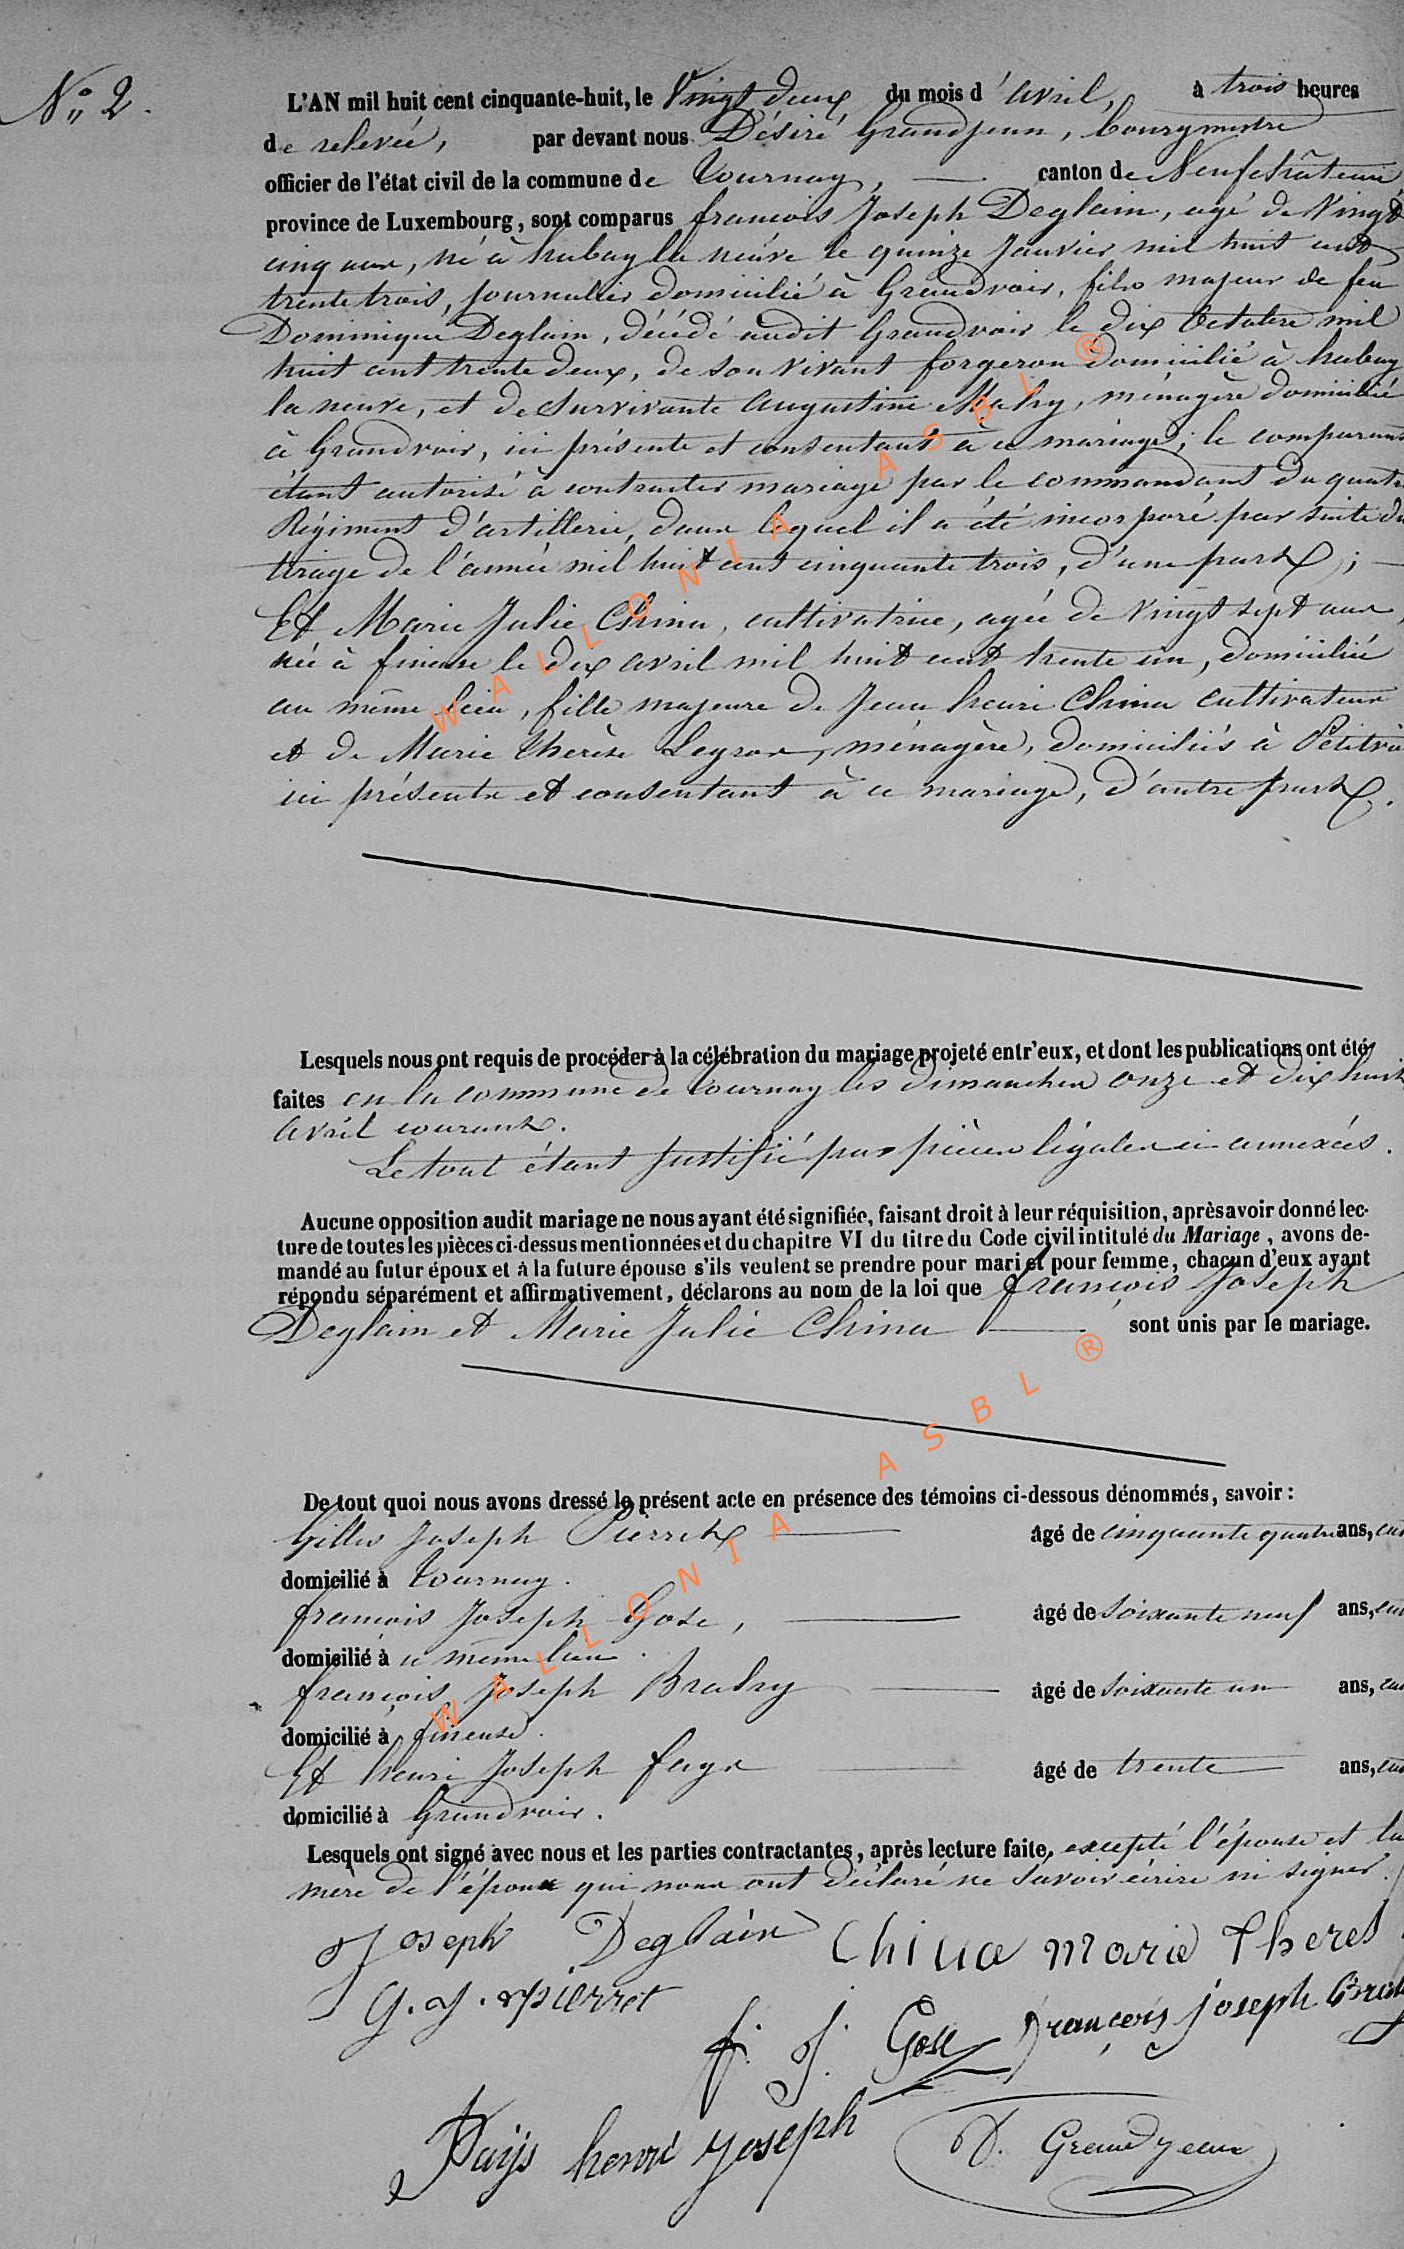 N° 2.
L'AN mil huit cent cinquante-huit, le Vingt deux du mois d'avril, à trois heures
de relevée, par devant nous Désiré Grandjean, bourgmestre
officier de l'état civil de la commune de Tournay, canton de Neufchâteau,
province de Luxembourg, sont comparus françois Joseph Deglain, agé de Vingt
cinq ans, né à habay la neuve le quinze Janvier mil huit cent
trente trois, Journalier domicilié à Grandvoir, fils majeur de feu
Dominique Deglain, décédé audit Grandvoir le dix Octobre mil
huit cent trente deux, de son vivant forgeron domicilié à habay
la neuve, et de survivante augustine Mahy, ménagère domiciliée
à Grandvoir, ici présente et consentant à ce mariage; le comparant
étant autorisé à contracter mariage par le commandant du quatr
Régiment d'artillerie, dans lequel il a été incorporé par suite du
tirage de l'année mil huit cent cinquante trois, d'une part;
Et Marie Julie China, cultivatrice, agée de Vingt sept ans,
née à fineuse le dix avril mil huit cent trente un, domiciliée
au même lieu, fille majeure de Jean henri China cultivateur
et de Marie Thérèse Legros, ménagère, domiciliés à Petitvoi
ici présents et consentant à ce mariage, d'autre part.
Lesquels nous ont requis de procéder à la célébration du mariage projeté entr'eux, et dont les publications ont été
faites en la commune de Tournay les dimanches onze et dix huit
avril courant.
Le tout étant Justifié par pièces légales ci annexées.
Aucune opposition audit mariage ne nous ayant été signifiée, faisant droit à leur réquisition, après avoir donné lec-
ture de toutes les pièces ci-dessus mentionnées et du chapitre VI du titre du Code civil intitulé du Mariage, avons de-
mandé au futur époux et à la future épouse s'ils veulent se prendre pour mari et pour femme, chacun d'eux ayant
répondu séparément et affirmativement, déclarons au nom de la loi que françois Joseph
Deglain et Marie Julie China sont unis par le mariage.
De tout quoi nous avons dressé le présent acte en présence des témoins ci-dessous dénommés, savoir:
Gilles Joseph Pierret âgé de cinquante quatre ans,
domicilié à Tournay.
françois Joseph Gose, âgé de soixante neuf ans,
domicilié à ce même lieu.
françois Joseph Brahy âgé de soixante un ans,
domicilié à fineuse.
Et henri Joseph fays âgé de trente ans,
domicilié à Grandvoir.
Lesquels ont signé avec nous et les parties contractantes, après lecture faite, excepté l'épouse et la
mère de l'époux qui nous ont déclaré ne savoir écrire ni signer.
Joseph Deglain China marie theres
G. J. Pierret
f. J. Gose françois joseph Brah
Fays henri Joseph D. Grandjean
WALLONIA ASBL ®
WALLONIA ASBL ®